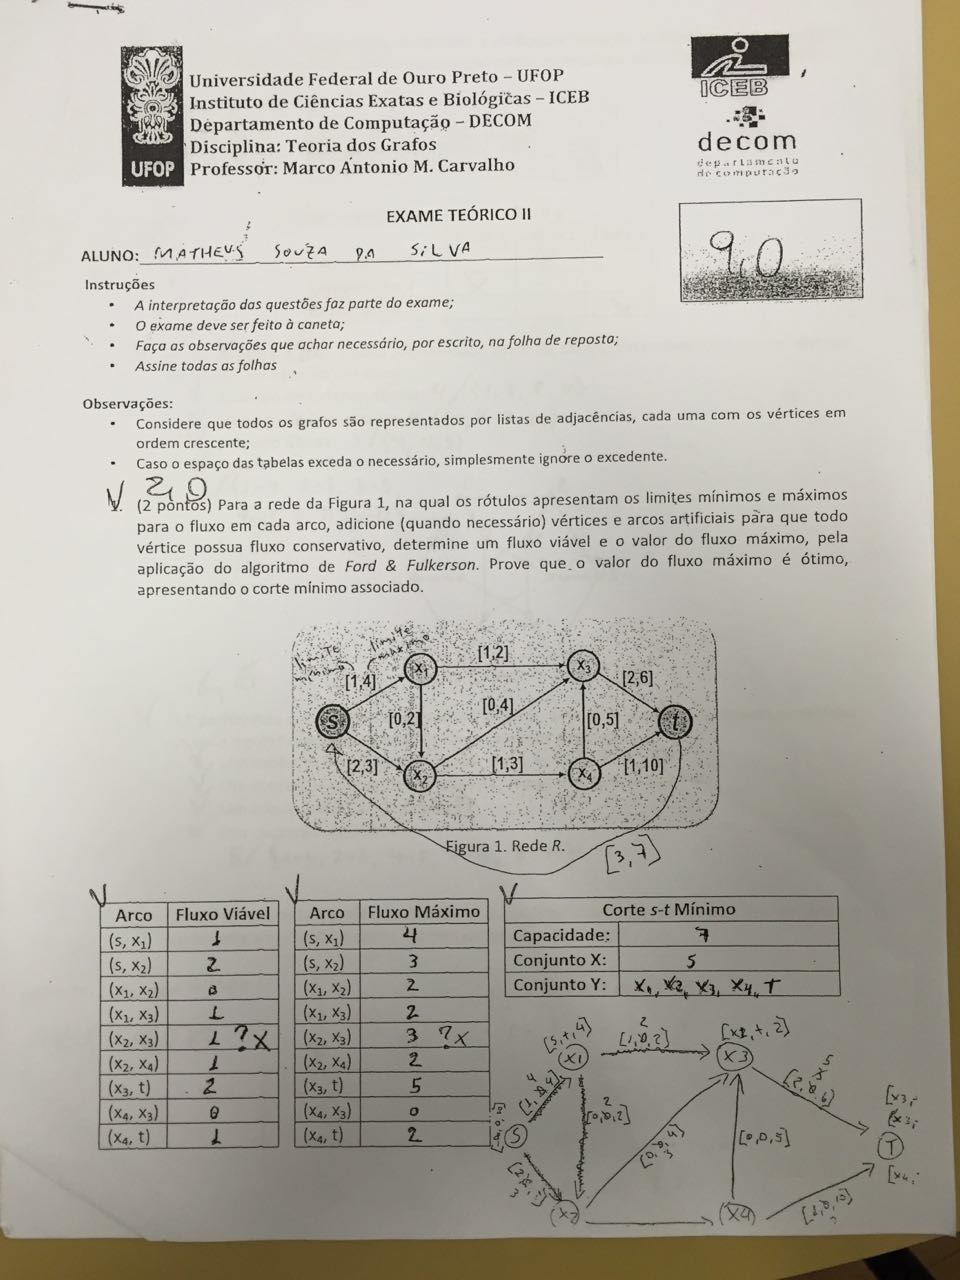 Universidade Federal de Ouro Preto – UFOP
Instituto de Ciências Exatas e Biológicas – ICEB
Departamento de Computação – DECOM
Disciplina: Teoria dos Grafos
Professor: Marco Antonio M. Carvalho
UFOP
ICEB
decom
departamento
de computação
EXAME TEÓRICO II
ALUNO: MATHEUS SOUZA DA SILVA
9,0
Instruções
• A interpretação das questões faz parte do exame;
• O exame deve ser feito à caneta;
• Faça as observações que achar necessário, por escrito, na folha de reposta;
• Assine todas as folhas
Observações:
• Considere que todos os grafos são representados por listas de adjacências, cada uma com os vértices em
ordem crescente;
• Caso o espaço das tabelas exceda o necessário, simplesmente ignore o excedente.
2,0
(2 pontos) Para a rede da Figura 1, na qual os rótulos apresentam os limites mínimos e máximos
para o fluxo em cada arco, adicione (quando necessário) vértices e arcos artificiais para que todo
vértice possua fluxo conservativo, determine um fluxo viável e o valor do fluxo máximo, pela
aplicação do algoritmo de Ford & Fulkerson. Prove que o valor do fluxo máximo é ótimo,
apresentando o corte mínimo associado.
limite mínimo limite máximo
x1 [1,2] x3
[1,4] [2,6]
s [0,2] [0,4] [0,5] t
[2,3] x2 [1,3] x4 [1,10]
Figura 1. Rede R. [3,7]
Arco Fluxo Viável
(s, x1) 1
(s, x2) 2
(x1, x2) 0
(x1, x3) 1
(x2, x3) 1 ? x
(x2, x4) 1
(x3, t) 2
(x4, x3) 0
(x4, t) 1
Arco Fluxo Máximo
(s, x1) 4
(s, x2) 3
(x1, x2) 2
(x1, x3) 2
(x2, x3) 3 ? x
(x2, x4) 2
(x3, t) 5
(x4, x3) 0
(x4, t) 2
Corte s-t Mínimo
Capacidade: 7
Conjunto X: S
Conjunto Y: x1, x2, x3, x4, T
[S,+,4]
X1
2
[1,0,2]
X3
2
[0,0,2]
S
[0,0,5]
T
X2
X4